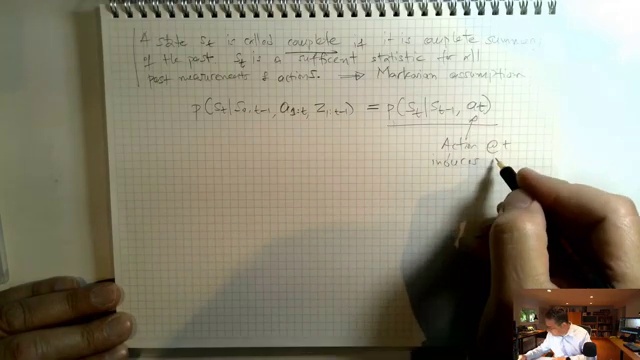 A state St is called complete if it is complete summary
of the past St is a sufficent statistic for all
past measurements & actions. ⟹ Markovian assumption
p(St|S0:t-1, a1:t, Z1:t-1) = p(St|St-1, at)
Action @ t
induces